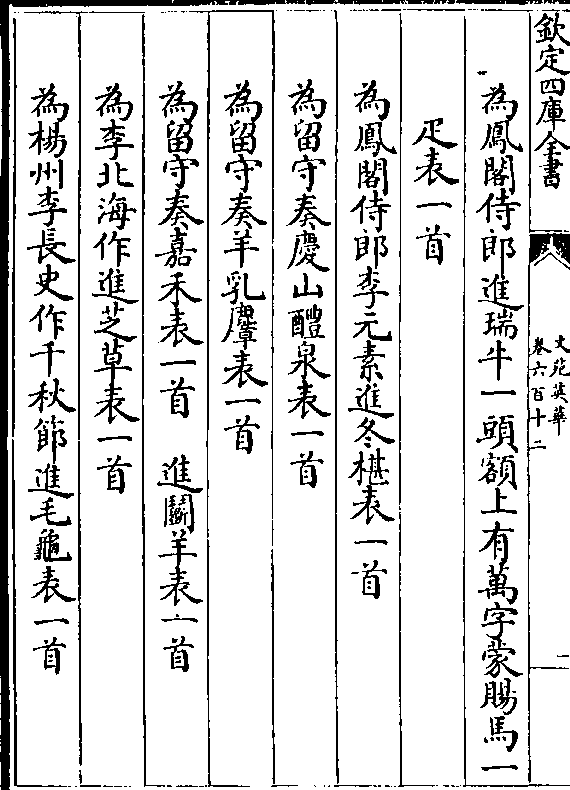 欽定四庫全書
文苑英華
卷六百十二
一
為鳳閣侍郎進瑞牛一頭額上有萬字蒙賜馬一
疋表一首
為鳳閣侍郎李元素進冬椹表一首
為留守奏慶山醴泉表一首
為留守奏羊乳麞表一首
為留守奏嘉禾表一首　進鬬羊表一首
為李北海作進芝草表一首
為楊州李長史作千秋節進毛龜表一首